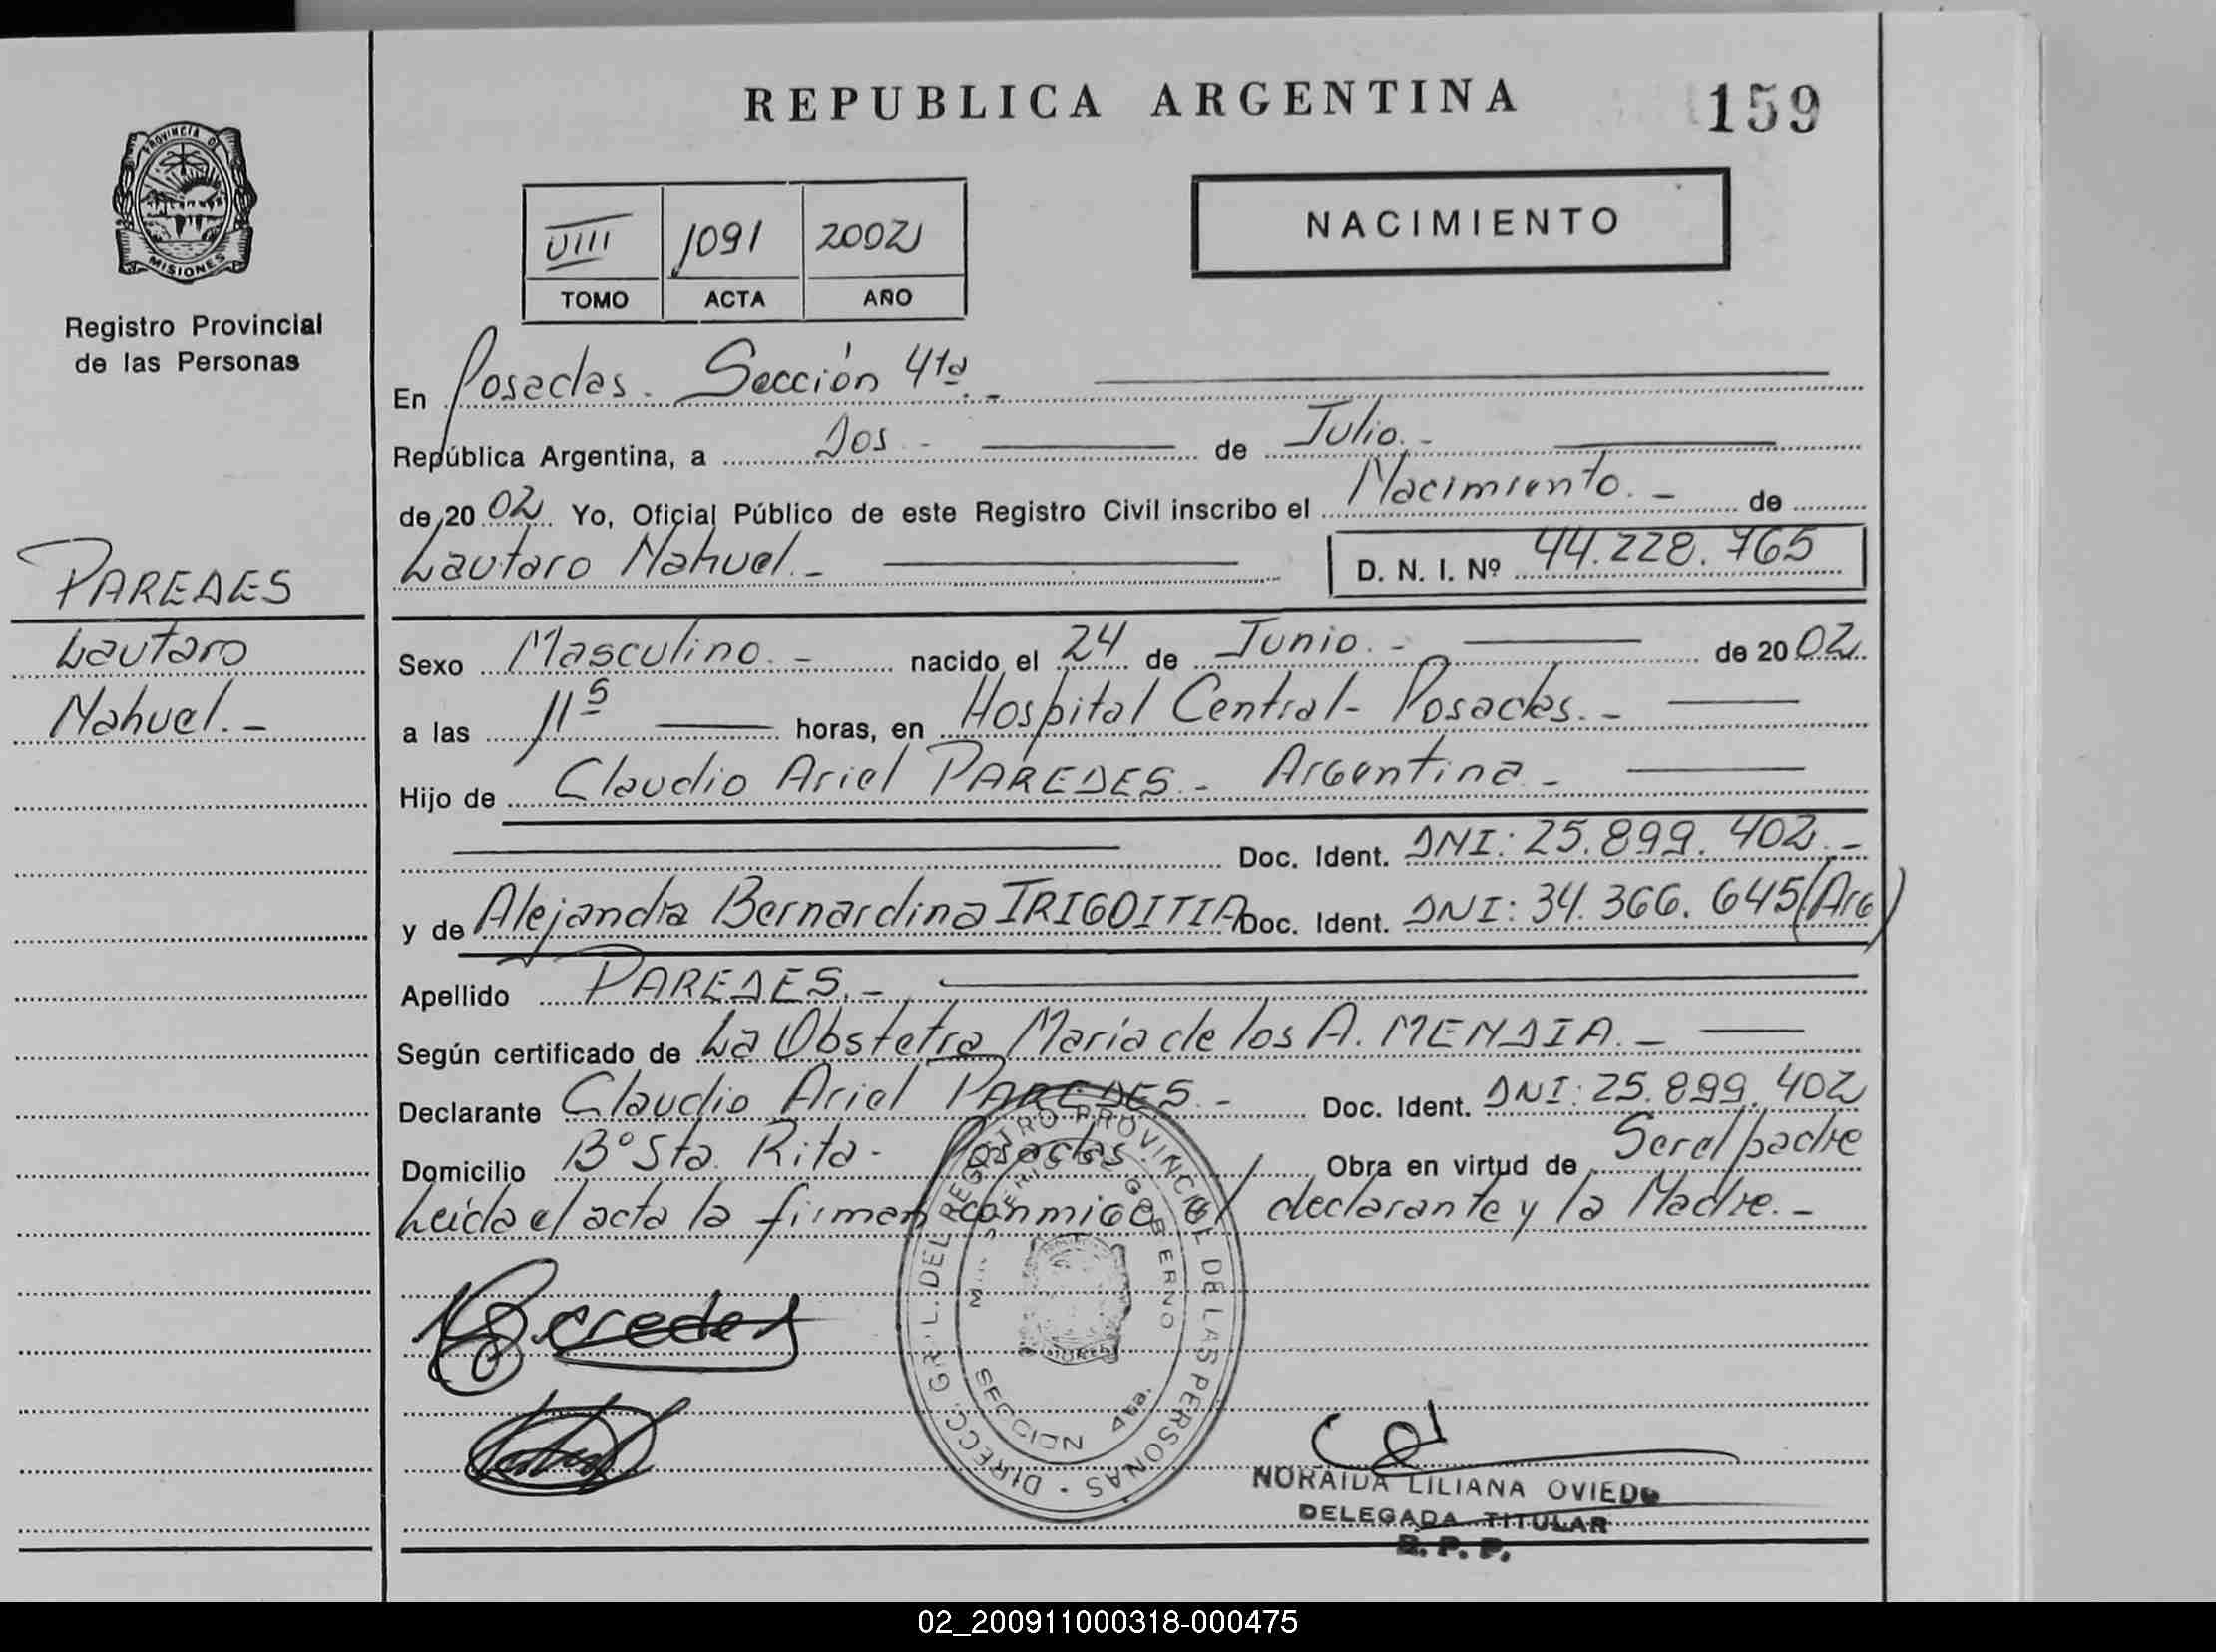 REPUBLICA ARGENTINA
159
PROVINCIA D
MISIONES
Registro Provincial
de las Personas
VIII 1091 2002
TOMO ACTA AÑO
NACIMIENTO
PAREDES
Lautaro
Nahuel.-
En Posadas. Sección 4ta.-
República Argentina, a Dos.- de Julio.-
de 2002 Yo, Oficial Público de este Registro Civil inscribo el Nacimiento.- de
Lautaro Nahuel.- D. N. I. Nº 44.228.765
Sexo Masculino.- nacido el 24 de Junio.- de 2002
a las 11 s horas, en Hospital Central- Posadas.-
Hijo de Claudio Ariel PAREDES.- Argentina.-
Doc. Ident. DNI: 25.899.402.-
y de Alejandra Bernardina IRIGOITIA Doc. Ident. DNI: 34.366.645(Arg)
Apellido PAREDES.-
Según certificado de La Obstetra María de los A. MENDIA.-
Declarante Claudio Ariel PAREDES.- Doc. Ident. DNI: 25.899.402
Domicilio Bº Sta. Rita- Posadas Obra en virtud de Ser el padre
Leída el acta la firman conmigo el declarante y la Madre.-
Paredes
DIRECC. GR'L. DEL REGISTRO PROVINCIAL DE LAS PERSONAS
GOBIERNO
SECCION 4ta.
NORAIDA LILIANA OVIEDO
DELEGADA TITULAR
R. P. P.
02_200911000318-000475